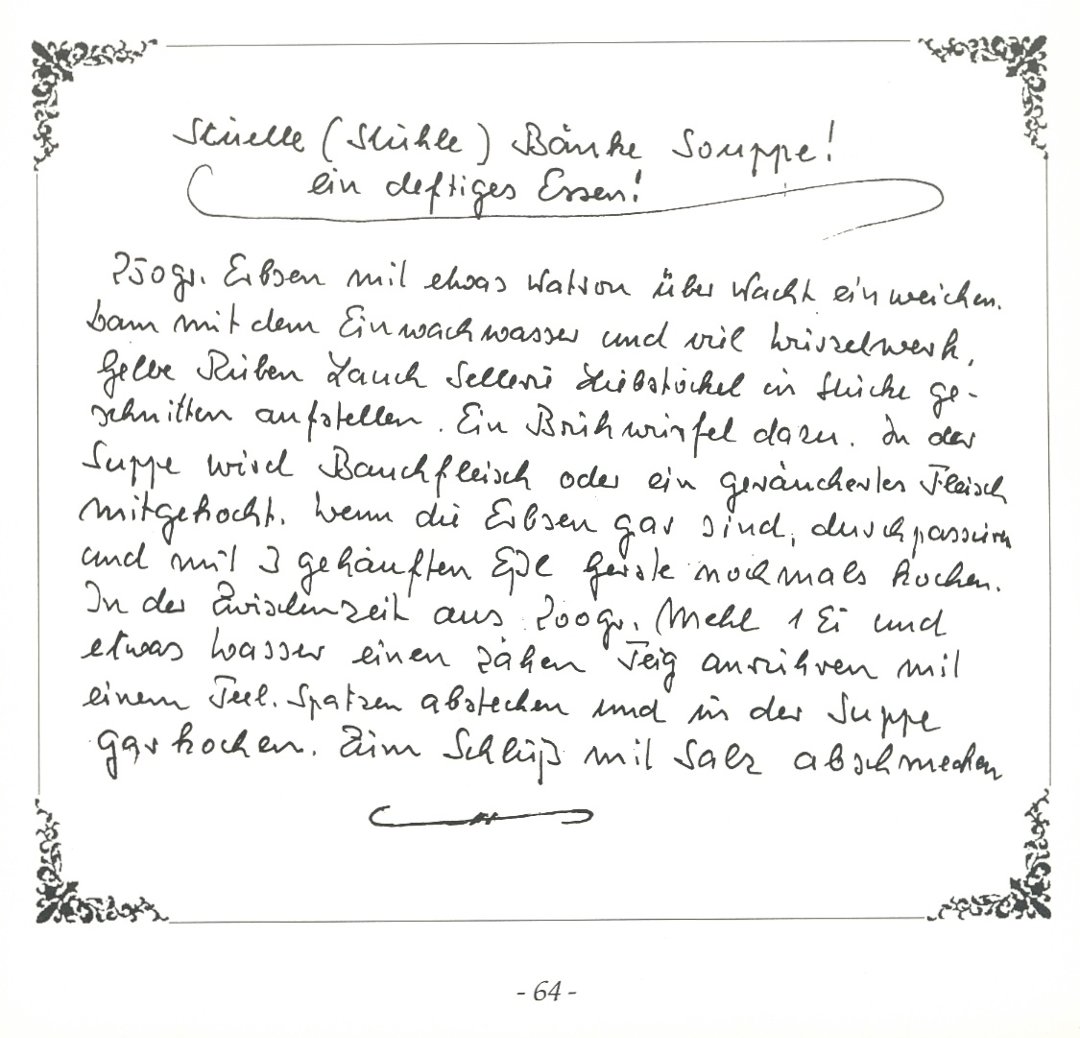 Stüelle (Stühle) Bänke Souppe!
ein deftiges Essen!
250gr. Erbsen mit etwas Natron über Nacht einweichen.
Dann mit dem Einwachwasser und viel Wurzelwerk,
Gelbe Rüben Lauch Sellerie Liebstöckel in Stücke ge-
schnitten aufstellen. Ein Brühwürfel dazu. In der
Suppe wird Bauchfleisch oder ein geräuchertes Fleisch
mitgekocht. Wenn die Erbsen gar sind, durchpassieren
und mit 3 gehäuften Eßl Gerste nochmals kochen.
In der Zwischenzeit aus 200gr. Mehl 1 Ei und
etwas Wasser einen zähen Teig anrühren mit
einem Teel. Spatzen abstechen und in der Suppe
garkochen. Zum Schluß mit Salz abschmecken
- 64 -